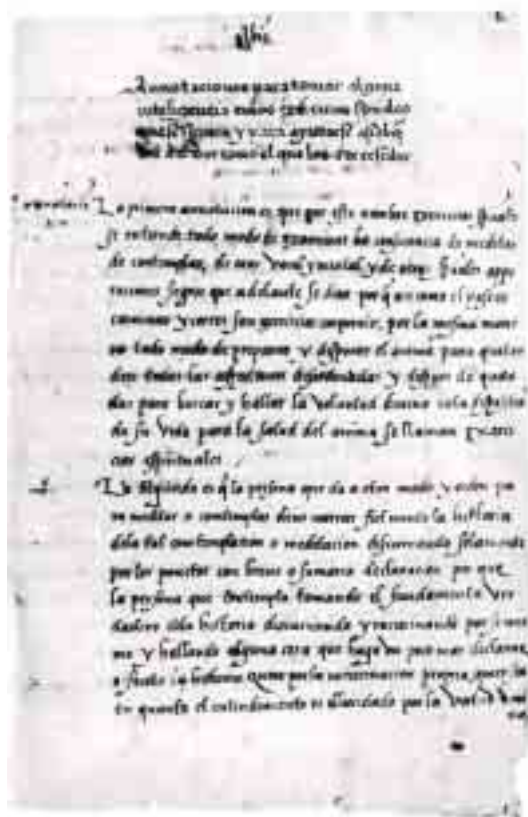 ihs
Annotaciones para tomar alguna
inteligencia en los exercicios spirituales
que se siguen y para ayudarse asi el q
los a de dar como el que los a de rescibir
La primera annotacion es, que por este nombre exercicios spuales
se entiende todo modo de examinar la consciencia de meditar
de contemplar, de orar vocal y mental y de otras spuales ope
raciones segun que adelante se dira porq asi como el pasear
caminar y correr son exercicios corporales, por la mesma mane
ra todo modo de preparar y disponer el anima para quitar
de si todas las affectiones desordenadas y despues de quita
das para buscar y hallar la voluntad divina en la disposicion
de su vida para la salud del anima se llaman exerci
cios spirituales
La segunda es q la persona que da a otro modo y orden pa
ra meditar o contemplar deve narrar fielmente la historia
de la tal contemplacion o meditacion discurriendo solamente
por los punctos con breve o sumaria declaracion por que
la persona que contempla tomando el fundamento ver
dadero de la historia discurriendo y raciocinando por si mes
mo y hallando alguna cosa que haga un poco mas declarar
o sentir la historia quier por la raciocinacion propia, quier sea
en quanto el entendimiento es illucidado por la virtud divi